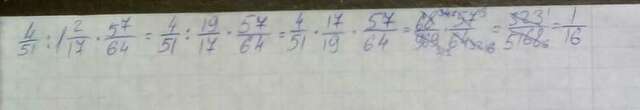 4/51 : 1 2/17 · 57/64 = 4/51 : 19/17 · 57/64 = 4/51 · 17/19 · 57/64 = 68/969 · 57/64 = 323/5168 = 1/16